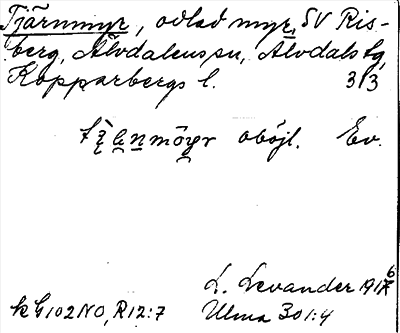 Tjärnmyr, odlad myr, SV Ris-
berg, Älvdalens sn, Älvdals tg,
Kopparbergs l. 3/3
oböjl. Ev.
L. Levander 1916
kG102NO, R12:7 Ulma 301:4